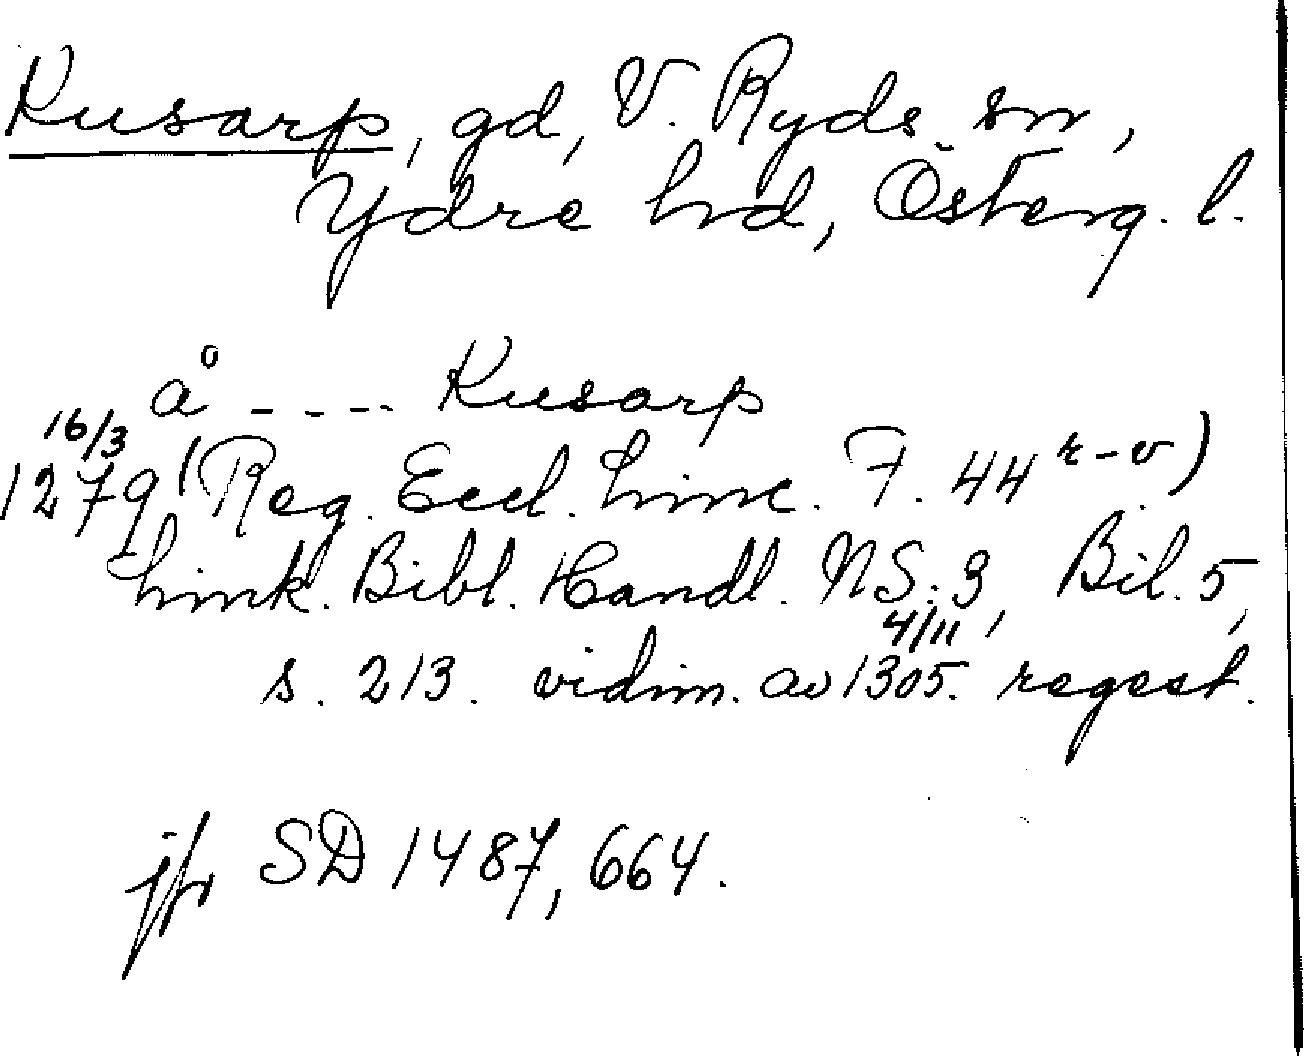 Kusarp, gd, V. Ryds sn,
Ydre hd, Österg. l.
å ---- Kusarp
16/3 1279 (Reg. Eccl. Linc. F. 44 r-v)
Link. Bibl. Handl. NS: 3, Bil. 5,
s. 213. vidim. av 4/11 1305. regest.
jfr SD 1487, 664.